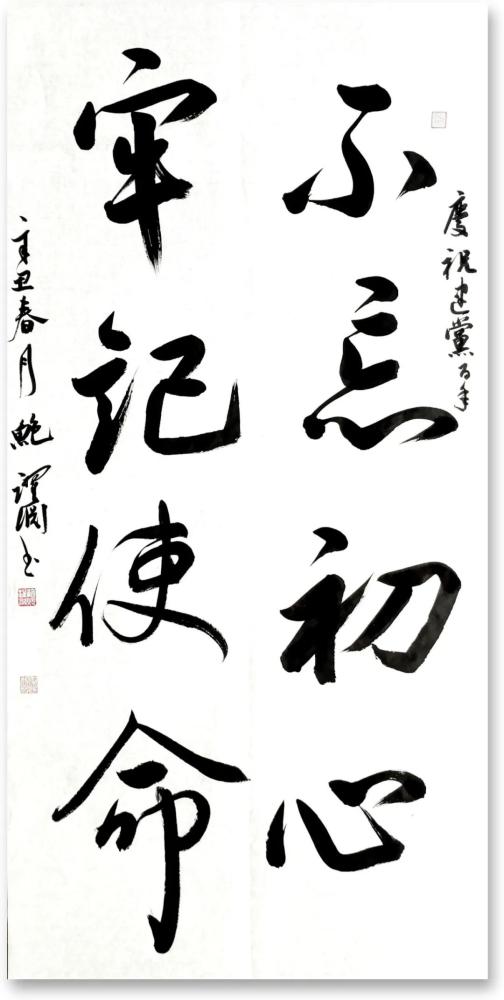 慶祝建黨百年
不忘初心
牢記使命
辛丑春月鮑